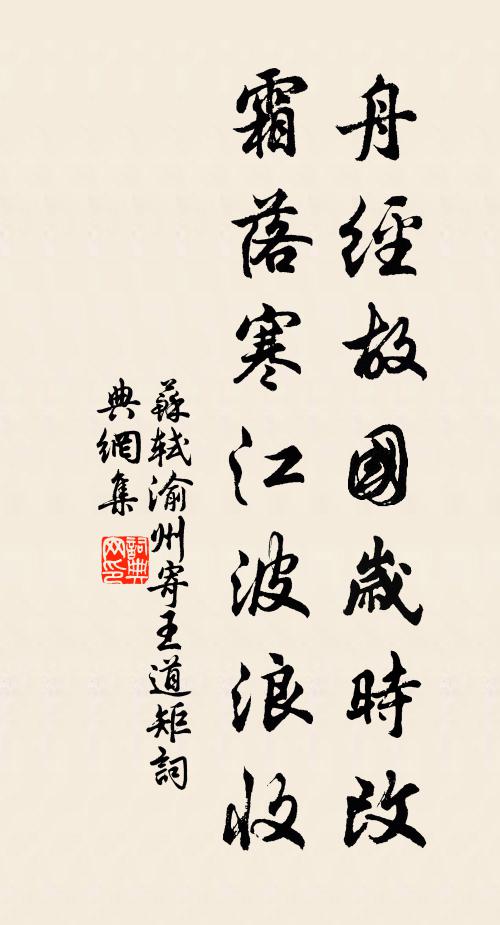 舟經故國歲時改
霜落寒江波浪收
蘇軾渝州寄王道矩詞
典網集
詞典
网印